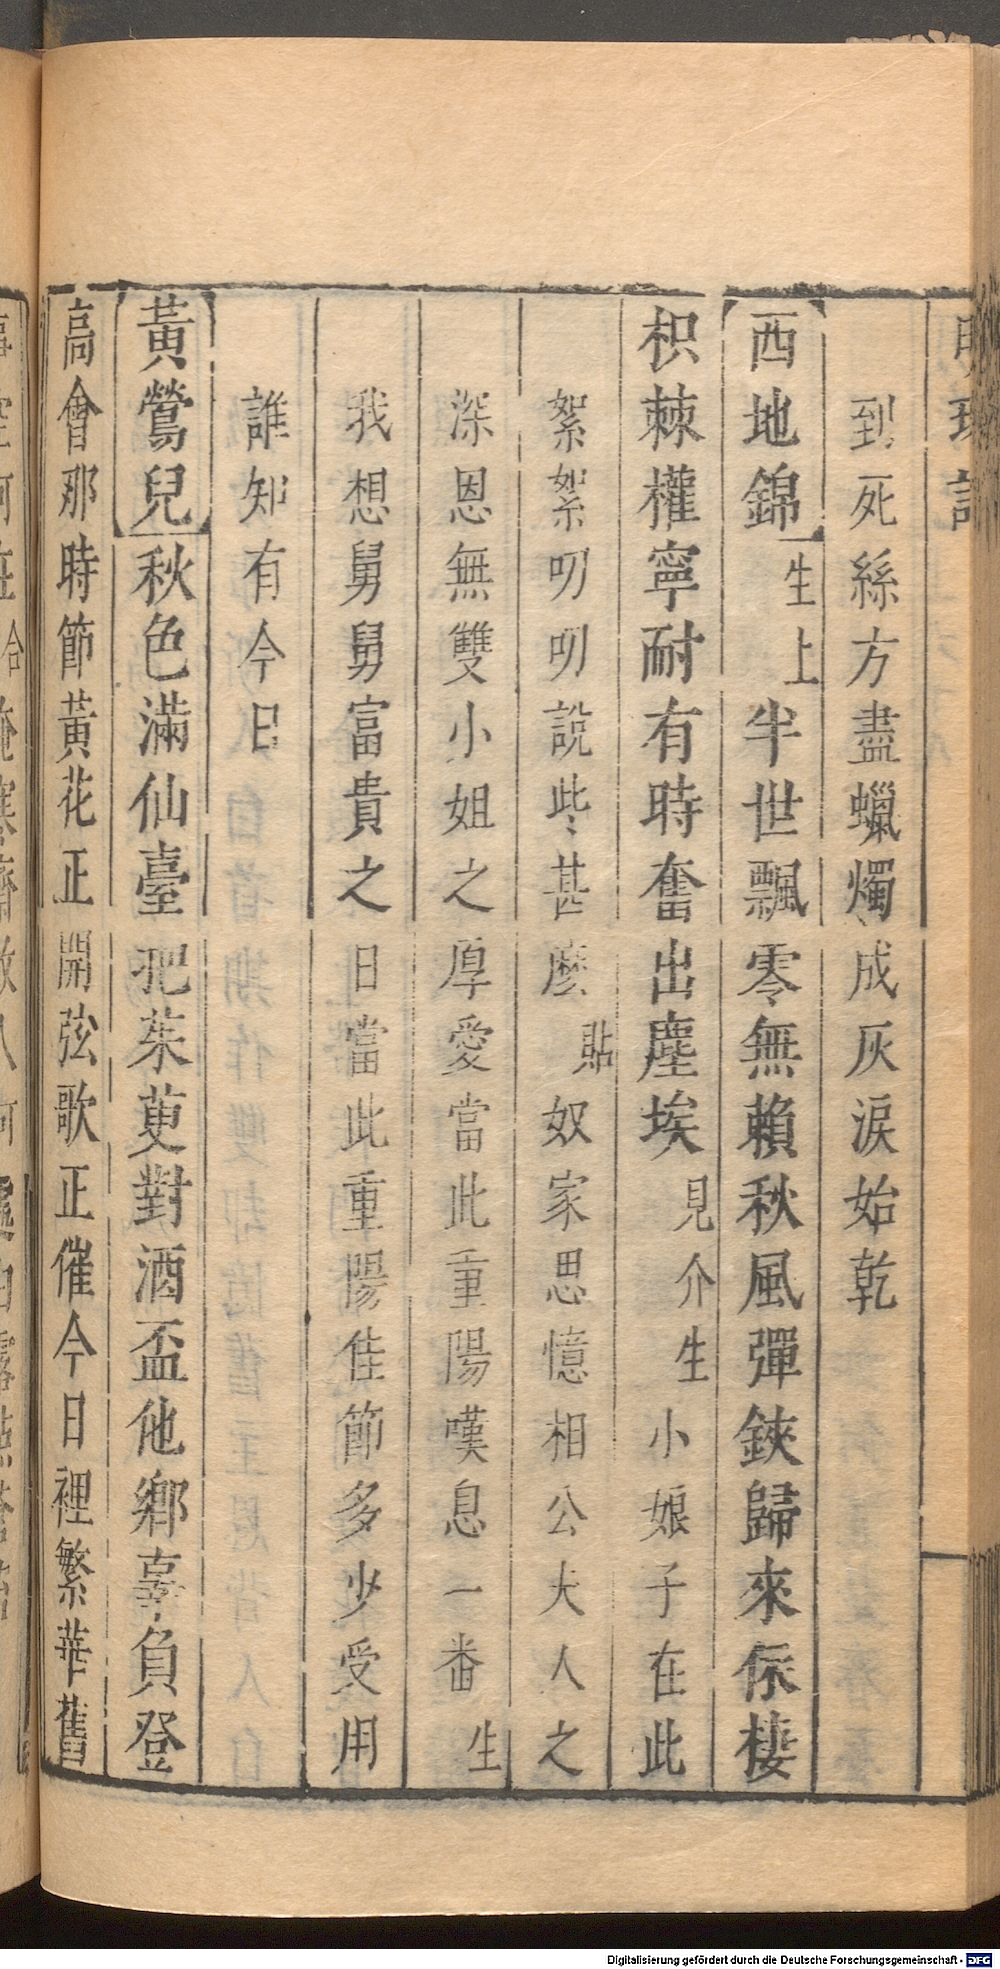 到死絲方盡蠟燭成灰淚始乾
西地錦 生上 半世飄零無賴秋風彈鋏歸來依棲
枳棘權寧耐有時奮出塵埃 見介 生 小娘子在此
絮絮叨叨說些甚麽 貼 奴家思憶相公夫人之
深恩無雙小姐之厚愛當此重陽嘆息一番 生
我想舅舅富貴之日當此重陽佳節多少受用
誰知有今日
黃鶯兒 秋色滿仙臺 把茱萸對酒盃他鄉辜負登
高會那時節黃花正開弦歌正催今日裡繁華舊
Digitalisierung gefördert durch die Deutsche Forschungsgemeinschaft - DFG